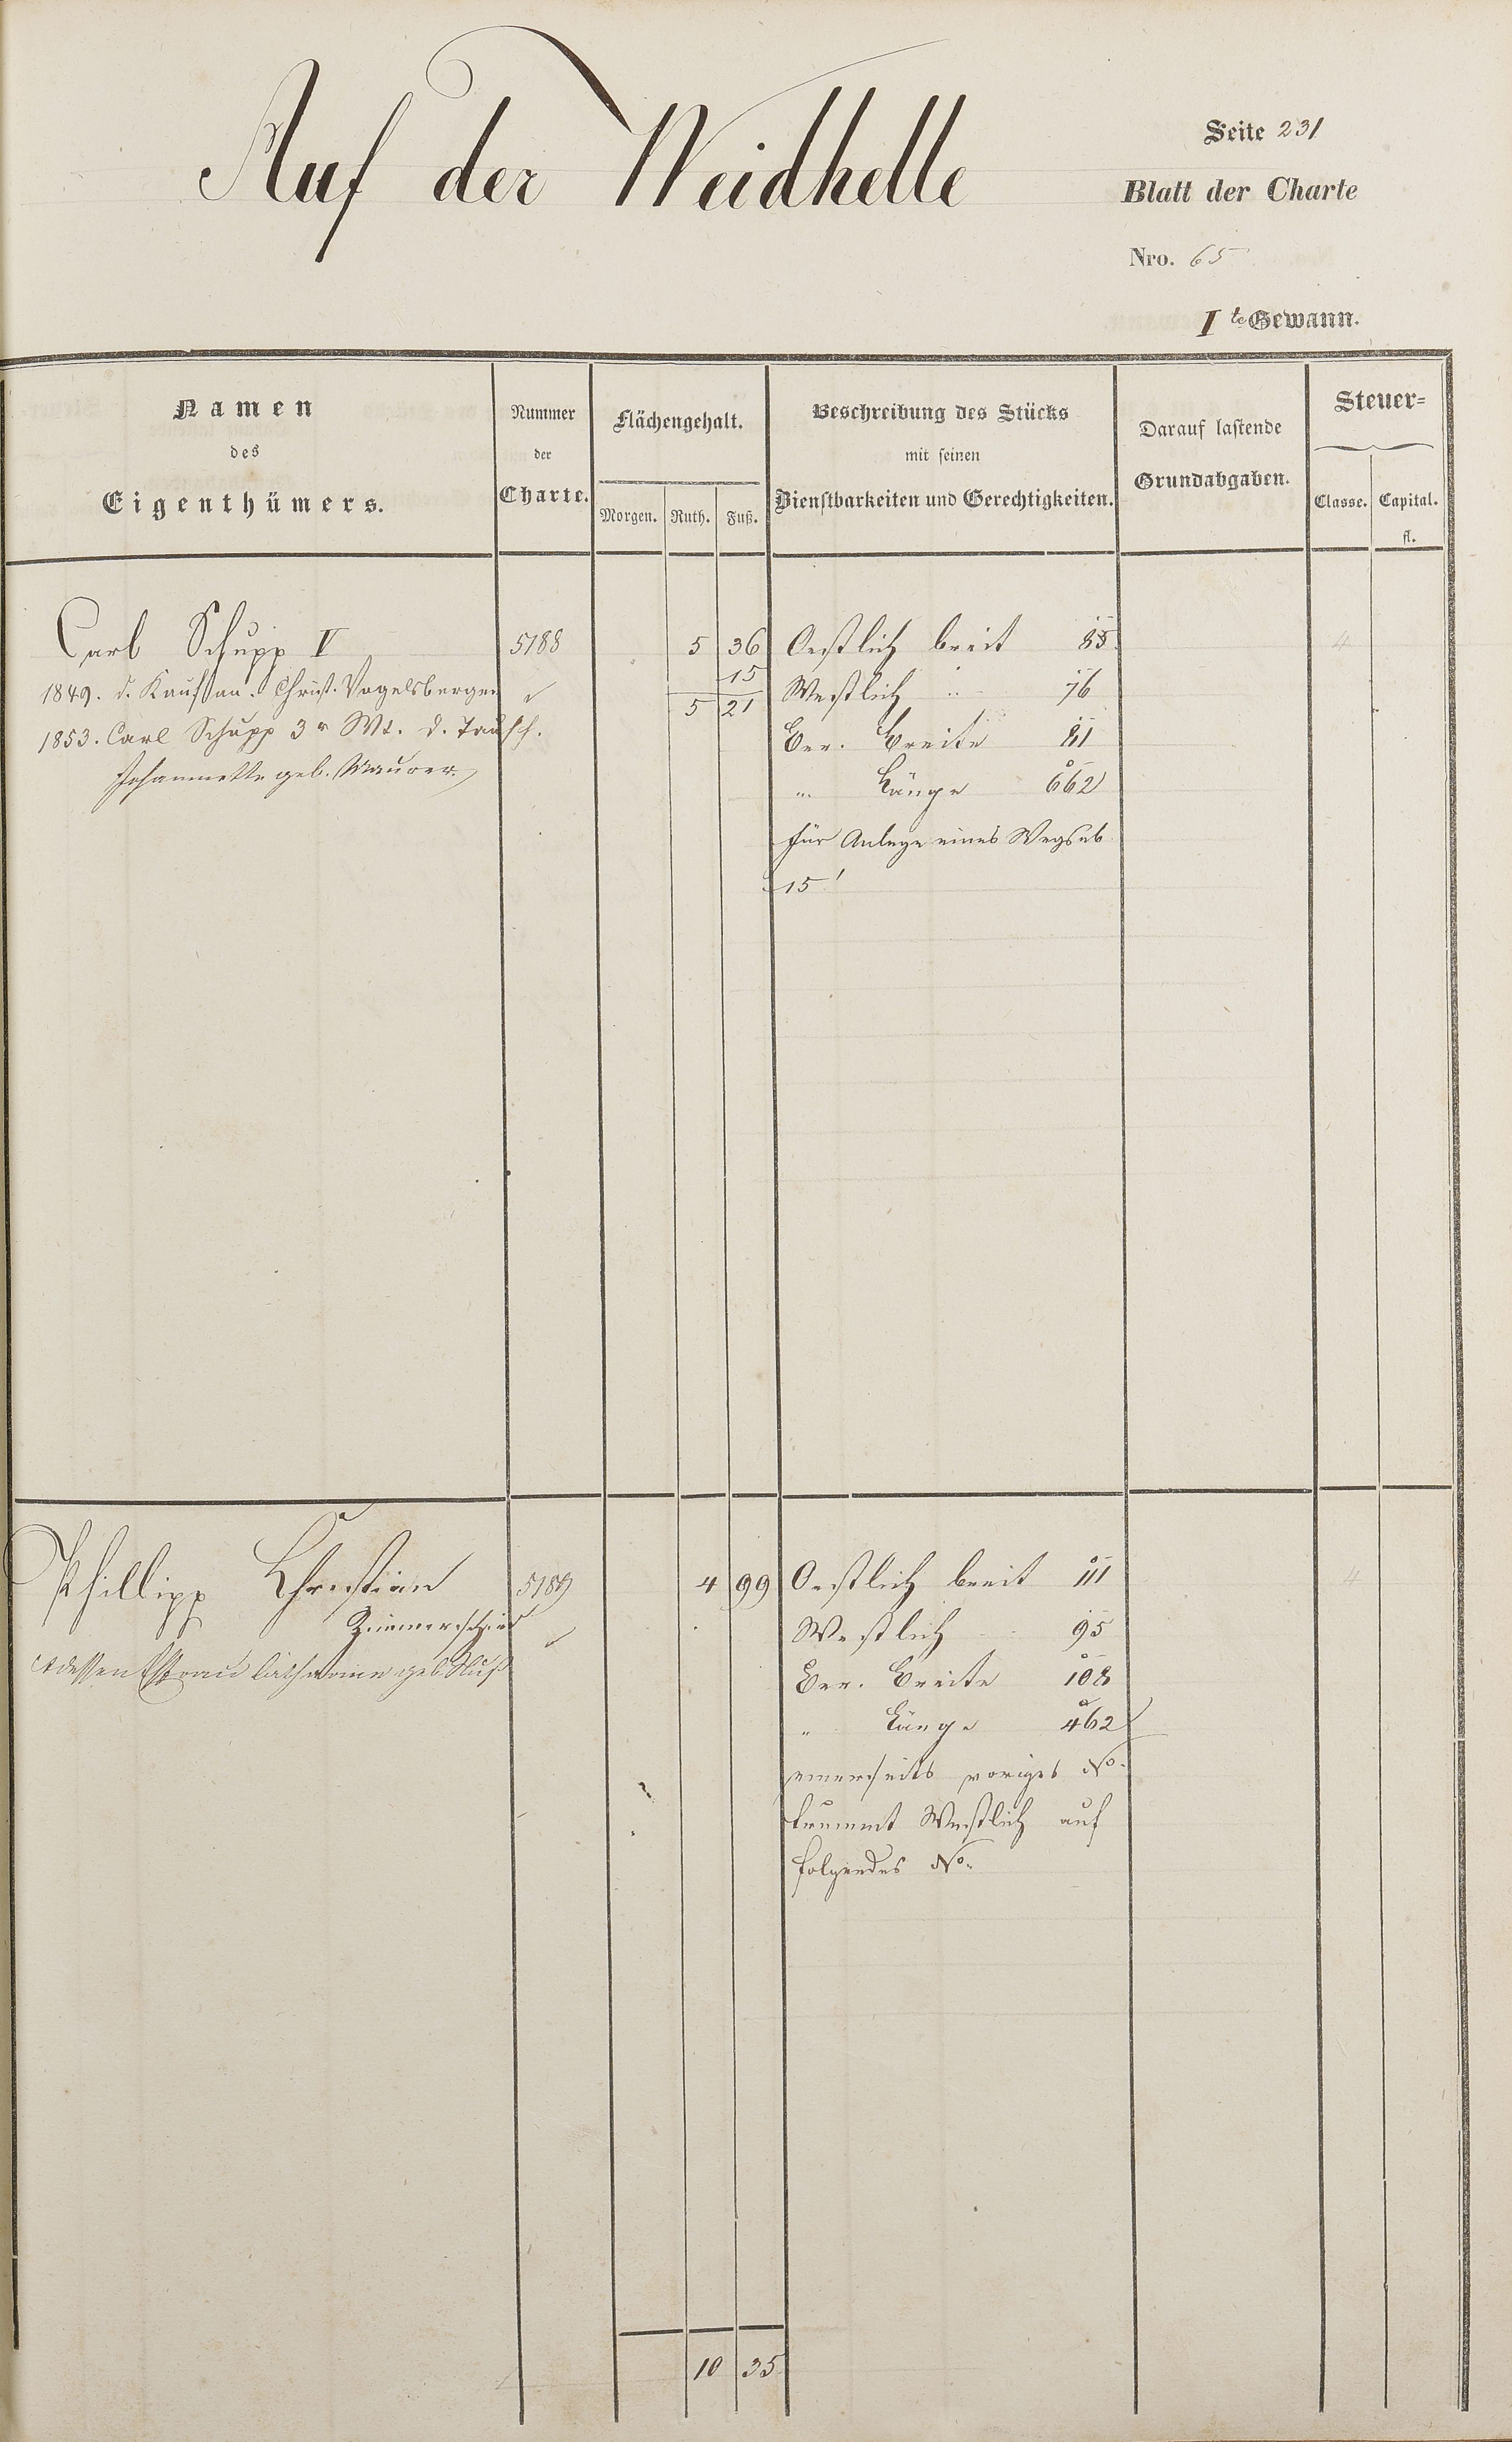 Auf der Weidhelle
Seite 231
Blatt der Charte
Nro. 65
I te Gewann.
Namen
des
Eigenthümers.
Nummer
der
Charte.
Flächengehalt.
Morgen. Ruth. Fuß.
Beschreibung des Stücks
mit seinen
Dienstbarkeiten und Gerechtigkeiten.
Darauf lastende
Grundabgaben.
Steuer=
Classe. Capital.
fl.
Carl Schupp V 5188 5 36 Oestlich breit 85 4
15
1849. d. Kauf an. Christ. Vogelsberger 5 21 Westlich " 76
1853. Carl Schupp 3r Wt. d. Tausch. Ber. Breite 81
Johannette geb. Maurer " Länge 662
für Anlage eines Wegs ab
15'
Phillipp Christian 5189 4 99 Oestlich breit 111 4
Zimmerschied Westlich " 95
dessen Ehefrau geb. Ber. Breite 108
" Länge 462
einerseits voriges No.
krummt Westlich auf
folgendes No.
10 35